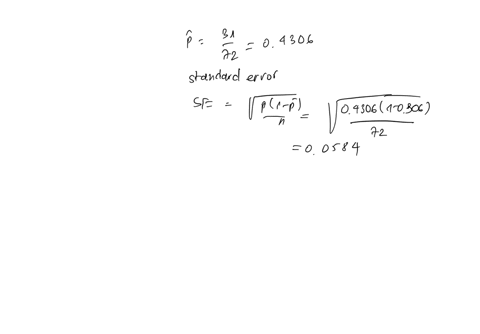 p̂ = 31/72 = 0.4306
standard error
SE = √(p(1-p)/n) = √(0.4306(1-0.306)/72)
= 0.0584